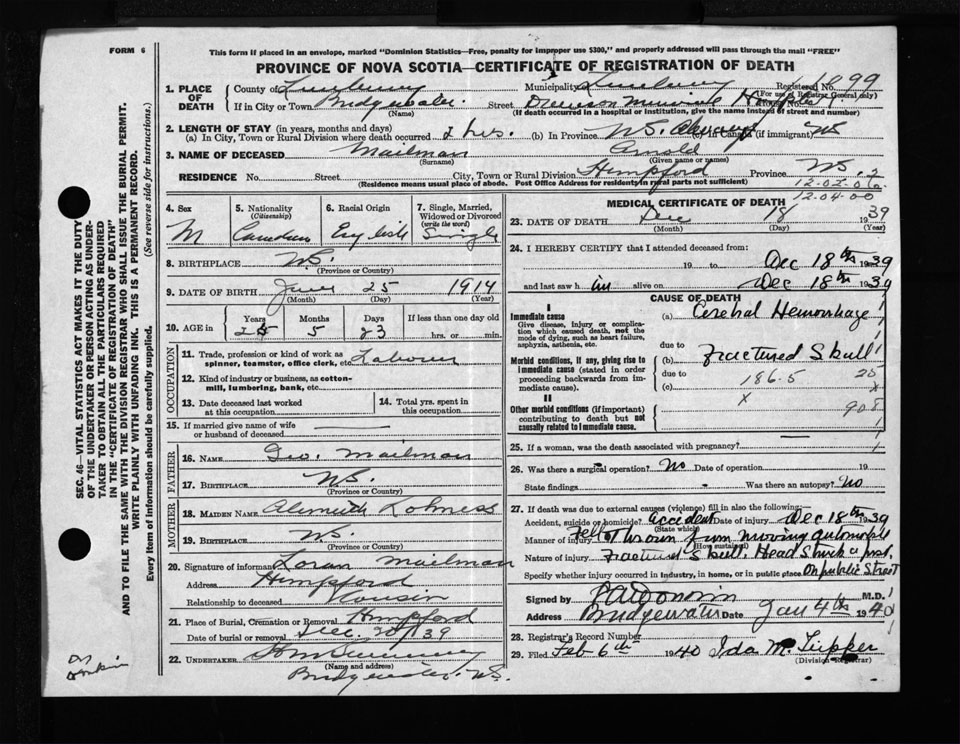 FORM 6
This form if placed in an envelope, marked "Dominion Statistics—Free, penalty for improper use $300," and properly addressed will pass through the mail "FREE"
PROVINCE OF NOVA SCOTIA—CERTIFICATE OF REGISTRATION OF DEATH
1. PLACE OF DEATH County of Lunenburg Municipality Lunenburg Registered No. 99
(For use of Registrar General only)
If in City or Town Bridgewater Street Dawson Memorial Hospital House No.
(Name) (If death occurred in a hospital or institution, give the name instead of street and number)
2. LENGTH OF STAY (in years, months and days)
(a) In City, Town or Rural Division where death occurred 2 hrs. (b) In Province N.S. Always (c) In Canada (if immigrant) NS
3. NAME OF DECEASED Mailman Arnold
(Surname) (Given name or names)
RESIDENCE No. Street City, Town or Rural Division Hempford Province N.S.
(Residence means usual place of abode. Post Office Address for residents in rural parts not sufficient)
12-02-0
12-04-00
4. Sex M
5. Nationality (Citizenship) Canadian
6. Racial Origin English
7. Single, Married, Widowed or Divorced (write the word) Single
8. BIRTHPLACE N.S.
(Province or Country)
9. DATE OF BIRTH June 25 1914
(Month) (Day) (Year)
10. AGE in Years 25 Months 5 Days 23 If less than one day old hrs. or min.
OCCUPATION
11. Trade, profession or kind of work as spinner, teamster, office clerk, etc. Labourer
12. Kind of industry or business, as cotton-mill, lumbering, bank, etc.
13. Date deceased last worked at this occupation
14. Total yrs. spent in this occupation
15. If married give name of wife or husband of deceased —
FATHER
16. NAME Geo. Mailman
17. BIRTHPLACE N.S.
(Province or Country)
MOTHER
18. MAIDEN NAME Lohness
19. BIRTHPLACE N.S.
(Province or Country)
20. Signature of informant Loran Mailman
Address Hempford
Relationship to deceased Cousin
21. Place of Burial, Cremation or Removal Hempford
Date of burial or removal Dec. 20/39
22. UNDERTAKER
(Name and address)
Bridgewater, N.S.
MEDICAL CERTIFICATE OF DEATH
23. DATE OF DEATH Dec 18 1939
(Month) (Day) (Year)
24. I HEREBY CERTIFY that I attended deceased from:
19 to Dec 18th 1939
and last saw him alive on Dec 18th 1939
CAUSE OF DEATH
I
Immediate cause (a) Cerebral Hemorrhage
Give disease, injury or complication which caused death, not the mode of dying, such as heart failure, asphyxia, asthenia, etc.
due to
Morbid conditions, if any, giving rise to immediate cause (stated in order proceeding backwards from immediate cause). (b) Fractured Skull
due to
(c) 186.5 25
x x
II
908
Other morbid conditions (if important) contributing to death but not causally related to immediate cause.
25. If a woman, was the death associated with pregnancy?
26. Was there a surgical operation? No Date of operation 19
State findings Was there an autopsy? No
27. If death was due to external causes (violence) fill in also the following:—
Accident, suicide or homicide? Accident Date of injury Dec 18th 1939
(State which)
Manner of injury Fell or thrown from moving automobile
(How sustained)
Nature of injury Fractured Skull. Head Struck a post.
Specify whether injury occurred in industry, in home, or in public place On public Street
Signed by M.D.
Address Bridgewater Jan 4th 1940
28. Registrar's Record Number
29. Filed Feb 6th 1940 Ida M. Tupper
(Division Registrar)
SEC. 46—VITAL STATISTICS ACT MAKES IT THE DUTY
OF THE UNDERTAKER OR PERSON ACTING AS UNDERTAKER TO OBTAIN ALL THE PARTICULARS REQUIRED
IN THE "CERTIFICATE OF REGISTRATION OF DEATH"
AND TO FILE THE SAME WITH THE DIVISION REGISTRAR WHO SHALL ISSUE THE BURIAL PERMIT.
WRITE PLAINLY WITH UNFADING INK. THIS IS A PERMANENT RECORD.
Every item of information should be carefully supplied. (See reverse side for instructions.)